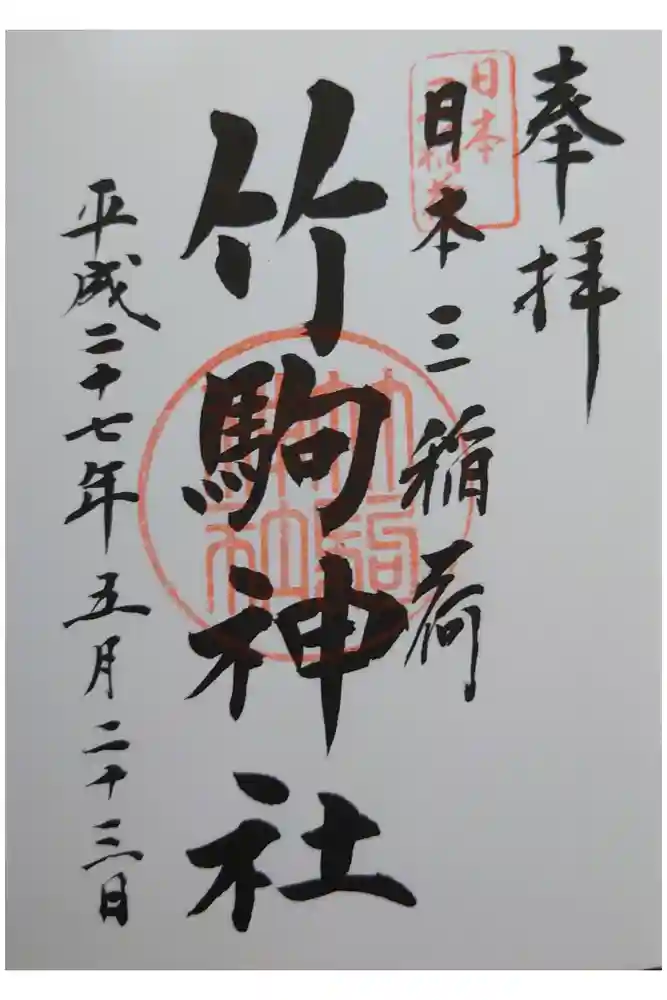 奉拝
日本三稲荷
日本
竹駒神社
竹駒神社
平成二十七年五月二十三日